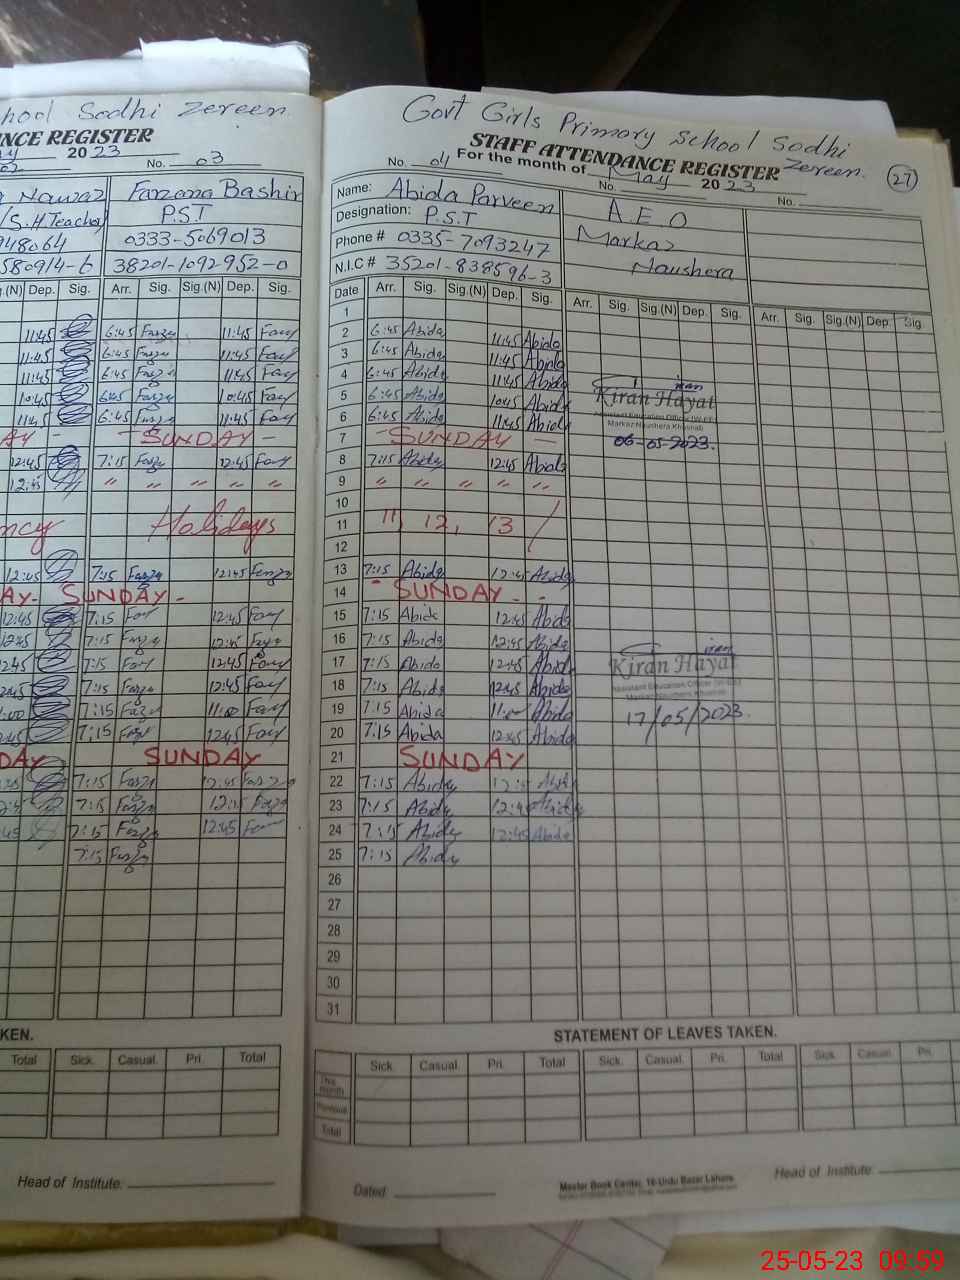 hool Sodhi Zereen
NCE REGISTER
2023
No. 03
Nawaz
Farzana Bashir
S.H.Teacher
P.S.T
948064
0333-5069013
580914-6
38201-1092952-0
Dep. Sig. Arr. Sig. Sig.(N) Dep. Sig.
11:45 6:45 Farza 11:45
11:45 6:45 Farza 11:45
11:45 6:45 Farza 11:45
10:45 6:45 Farza 10:45
11:45 6:45 Farza 11:45
AY - SUNDAY -
12:45 7:15 Farza 12:45
12:45 " " " " "
ncy Holidays
12:45 7:15 Farza 12:45 Farza
AY- SUNDAY -
12:45 7:15 12:45
12:45 7:15 Farza 12:45
12:45 7:15 12:45
12:45 7:15 Farza 12:45
11:00 7:15 Farza 11:00
12:45 7:15 12:45
DAY SUNDAY
7:15 Farza 12:45 Farza
7:15 Farza 12:45 Farza
7:15 Farza 12:45
7:15 Farza
KEN.
Total Sick. Casual. Pri. Total
Head of Institute:
Govt Girls Primary School Sodhi
Zereen.
27
STAFF ATTENDANCE REGISTER
No. 04 For the month of May 2023
No. No.
Name: Abida Parveen
Designation: P.S.T
Phone # 0335-7093247
N.I.C # 35201-838596-3
A.E.O
Markaz
Naushera
Date Arr. Sig. Sig.(N) Dep. Sig. Arr. Sig. Sig.(N) Dep. Sig. Arr. Sig. Sig.(N) Dep. Sig.
1
2 6:45 Abida 11:45 Abida
3 6:45 Abida 11:45 Abida
4 6:45 Abida 11:45 Abida
5 6:45 Abida 10:45 Abida
6 6:45 Abida 11:45 Abida
Kiran Hayat
Assistant Education Officer (W-EE)
Markaz Naushera Khushab
06-05-2023.
7 - SUNDAY -
8 7:15 Abida 12:45 Abida
9 " " " " "
10
11 11, 12, 13 /
12
13 7:15 Abida 12:45 Abida
14 - SUNDAY - -
15 7:15 Abida 12:45 Abida
16 7:15 Abida 12:45 Abida
17 7:15 Abida 12:45 Abida
18 7:15 Abida 12:45 Abida
19 7:15 Abida 11:00 Abida
20 7:15 Abida 12:45 Abida
Kiran Hayat
Assistant Education Officer (W-EE)
Markaz Naushera Khushab
17/05/2023.
21 SUNDAY
22 7:15 Abida 12:45 Abida
23 7:15 Abida 12:45 Abida
24 7:15 Abida 12:45 Abida
25 7:15 Abida
26
27
28
29
30
31
STATEMENT OF LEAVES TAKEN.
Sick. Casual. Pri. Total Sick. Casual. Pri. Total Sick. Casual. Pri.
This Month
Previous
Total
Dated
Master Book Center, 16-Urdu Bazar Lahore
Head of Institute:
25-05-23 09:59